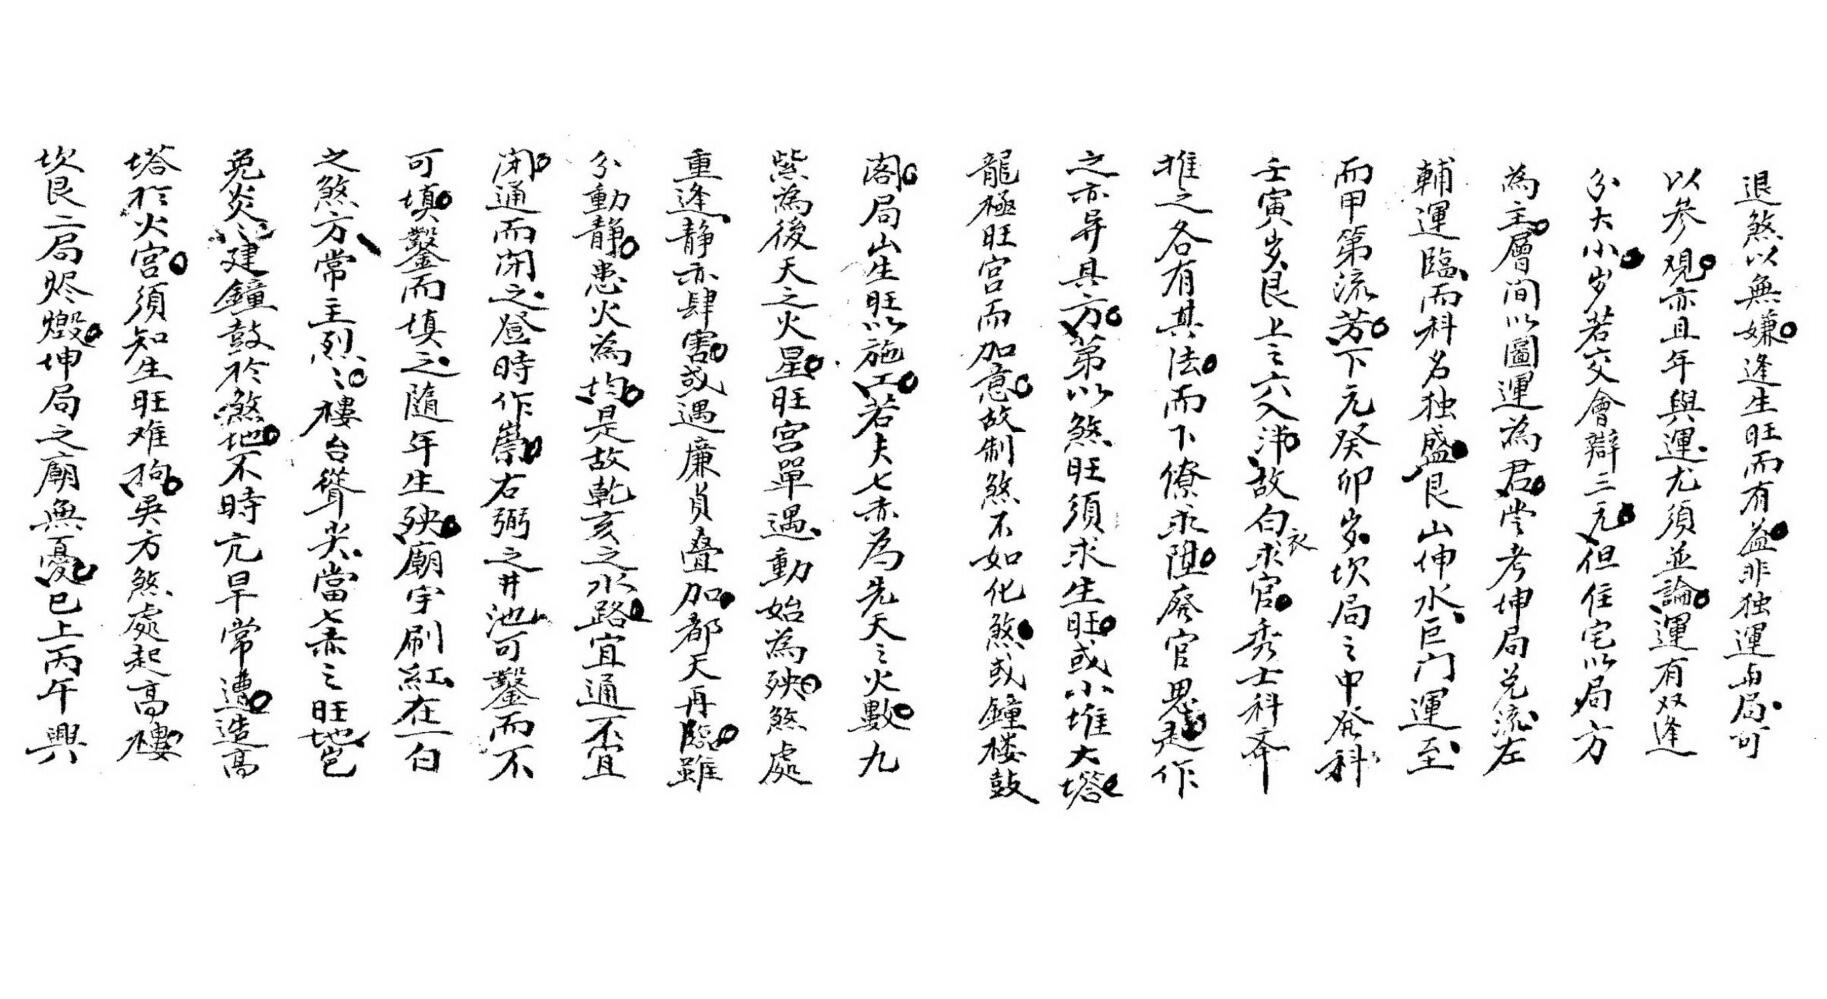 退煞以無嫌逢生旺而有益非独運与局可
以参观亦且年與運尤須並論運有双逢
分大小岁若交會辯三元但住宅以局方
為主層间以圖運為君嘗考坤局兑流左
輔運臨而科名独盛艮山伸水巨门運至
而甲第流芳下元癸卯岁坎局之中発科
壬寅岁艮上之六入泮故白衣求官秀士科斉
推之各有其法而下僚求陞廢官思起作
之亦异其方第以煞旺須求生旺或小堆大塔
龍極旺宫而加意故制煞不如化煞或鐘楼鼓
阁局山生旺以施工若夫七赤為先天之火數九
紫為後天之火星旺宫單遇動始為殃煞處
重逢静亦肆害或遇廉貞叠加都天再臨雖
分動静患火為均是故乾亥之水路宜通不宜
闭通而闭之登時作祟右弼之井池可鑿而不
可填鑿而填之隨年生殃廟宇刷紅在一白
之煞方常主烈烈樓台聳尖當七赤之旺地豈
免炎炎建鐘鼓於煞地不時亢旱常遭造高
塔於火宫須知生旺难拘吳方煞處起高樓
坎艮二局烬燬坤局之廟無憂巳上丙午興